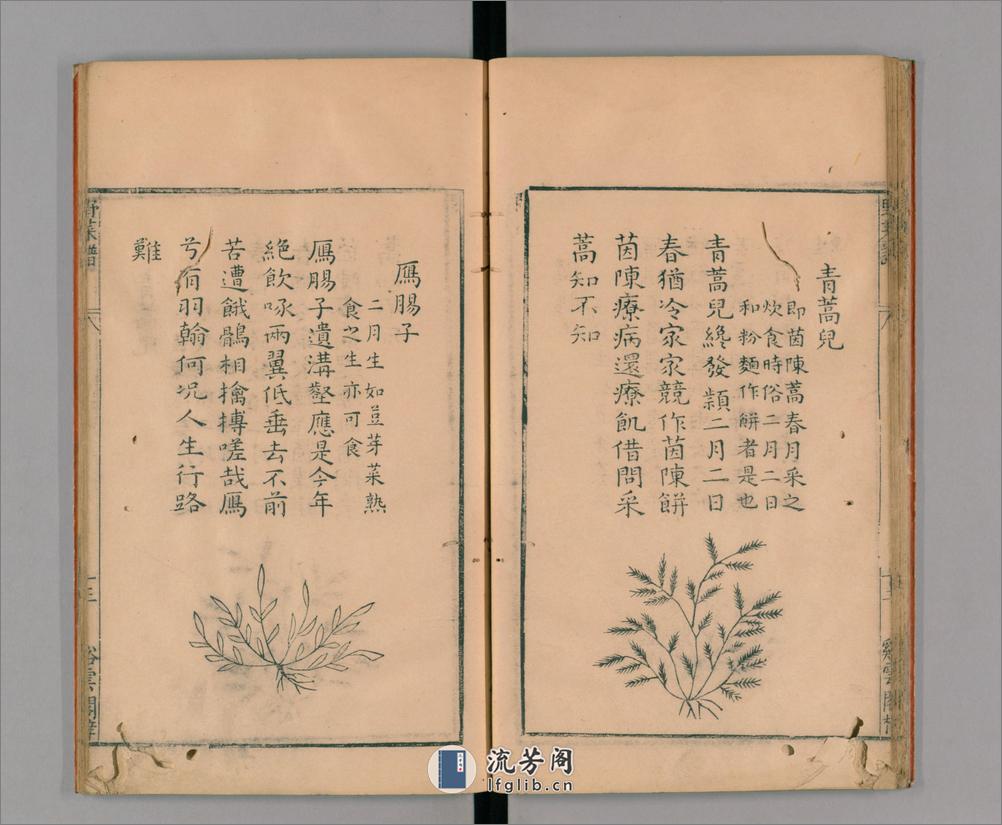 青蒿兒
即茵陳蒿春月采之
炊食時俗二月二日
和粉麵作餅者是也
青蒿兒纔發穎二月二日
春猶冷家家競作茵陳餅
茵陳療病還療飢借問采
蒿知不知
鴈腸子
二月生如荳芽菜熟
食之生亦可食
鴈腸子遺溝壑應是今年
絶飲啄兩翼低垂去不前
苦遭餓鶻相擒摶嗟哉鴈
兮有羽翰何况人生行路
難
野菜譜
流芳阁
lfglib.cn